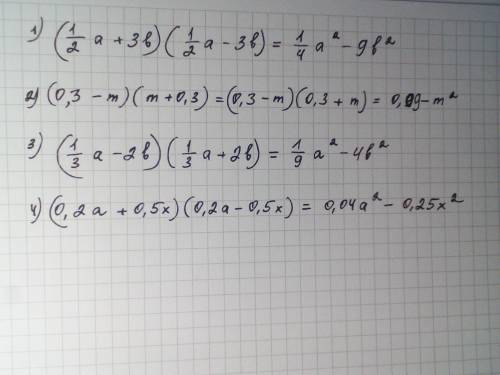 1) (1/2 a + 3в)(1/2 a - 3в) = 1/4 a² - 9в²
2) (0,3 - m)(m + 0,3) = (0,3 - m)(0,3 + m) = 0,09 - m²
3) (1/3 a - 2в)(1/3 a + 2в) = 1/9 a² - 4в²
4) (0,2a + 0,5x)(0,2a - 0,5x) = 0,04a² - 0,25x²